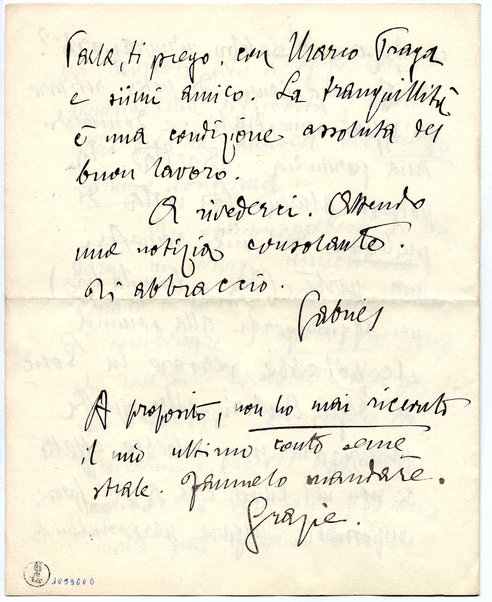 Parla, ti prego, con Marco Praga
e siimi amico. La tranquillità
è una condizione assoluta del
buon lavoro.
A rivederci. Attendo
una notizia consolante.
Ti abbraccio.
Gabriel
A proposito, non ho mai ricevuto
il mio ultimo conto seme
strale. Fammelo mandare.
Grazie.
1059006